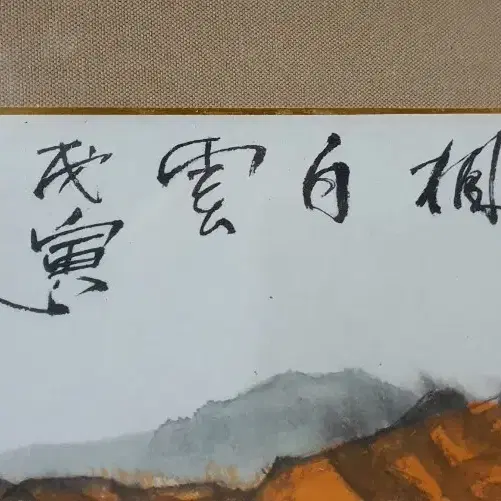 白雲
戊寅